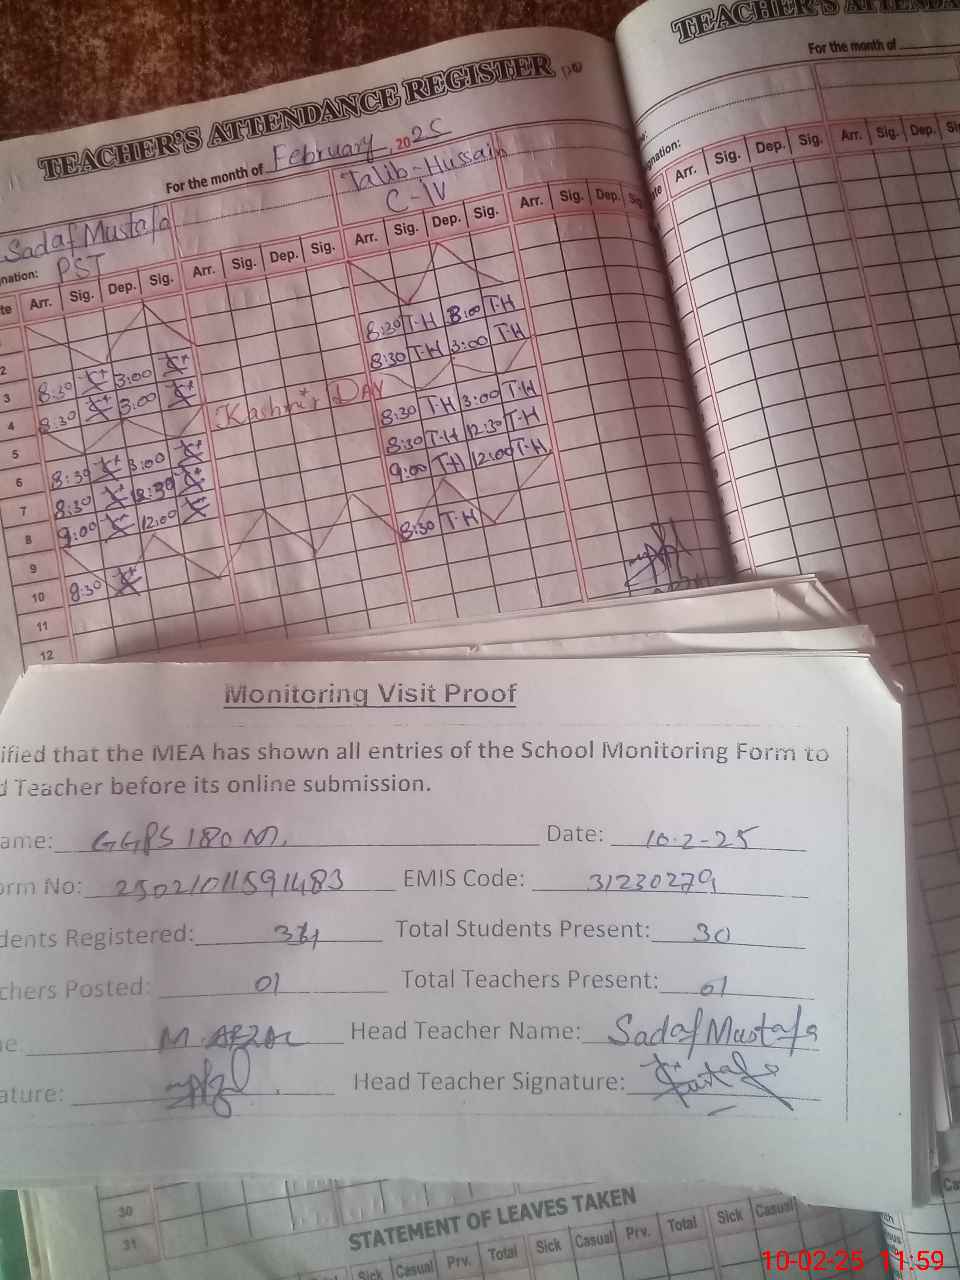 TEACHER'S ATTENDANCE REGISTER
For the month of February, 2025
Sadaf Mustafa
Talib-Hussain
nation: PST
C-IV
te Arr. Sig. Dep. Sig. Arr. Sig. Dep. Sig. Arr. Sig. Dep. Sig. Arr. Sig. Dep. Sig.
1
2
3 8:30 3:00 8:30 T-H 3:00 T-H
4 8:30 3:00 8:30 T-H 3:00 T-H
5 Kashmir DAY
6 8:30 3:00 8:30 T-H 3:00 T-H
7 8:30 12:30 8:30 T-H 12:30 T-H
8 9:00 12:00 9:00 TH 12:00 T-H
9
10 8:30 8:30 T-H
11
12
TEACHER'S ATTENDA
For the month of
gnation:
te Arr. Sig. Dep. Sig. Arr. Sig. Dep.
Monitoring Visit Proof
ified that the MEA has shown all entries of the School Monitoring Form to
d Teacher before its online submission.
ame: GGPS 180 M. Date: 10-2-25
orm No: 25021011591483 EMIS Code: 31230279
dents Registered: Total Students Present: 30
chers Posted: 01 Total Teachers Present: 01
e: M. AFZAL Head Teacher Name: Sadaf Mustafa
ature: Head Teacher Signature:
30
31
STATEMENT OF LEAVES TAKEN
Sick Casual Prv. Total Sick Casual Prv. Total Sick Casual
10-02-25 11:59